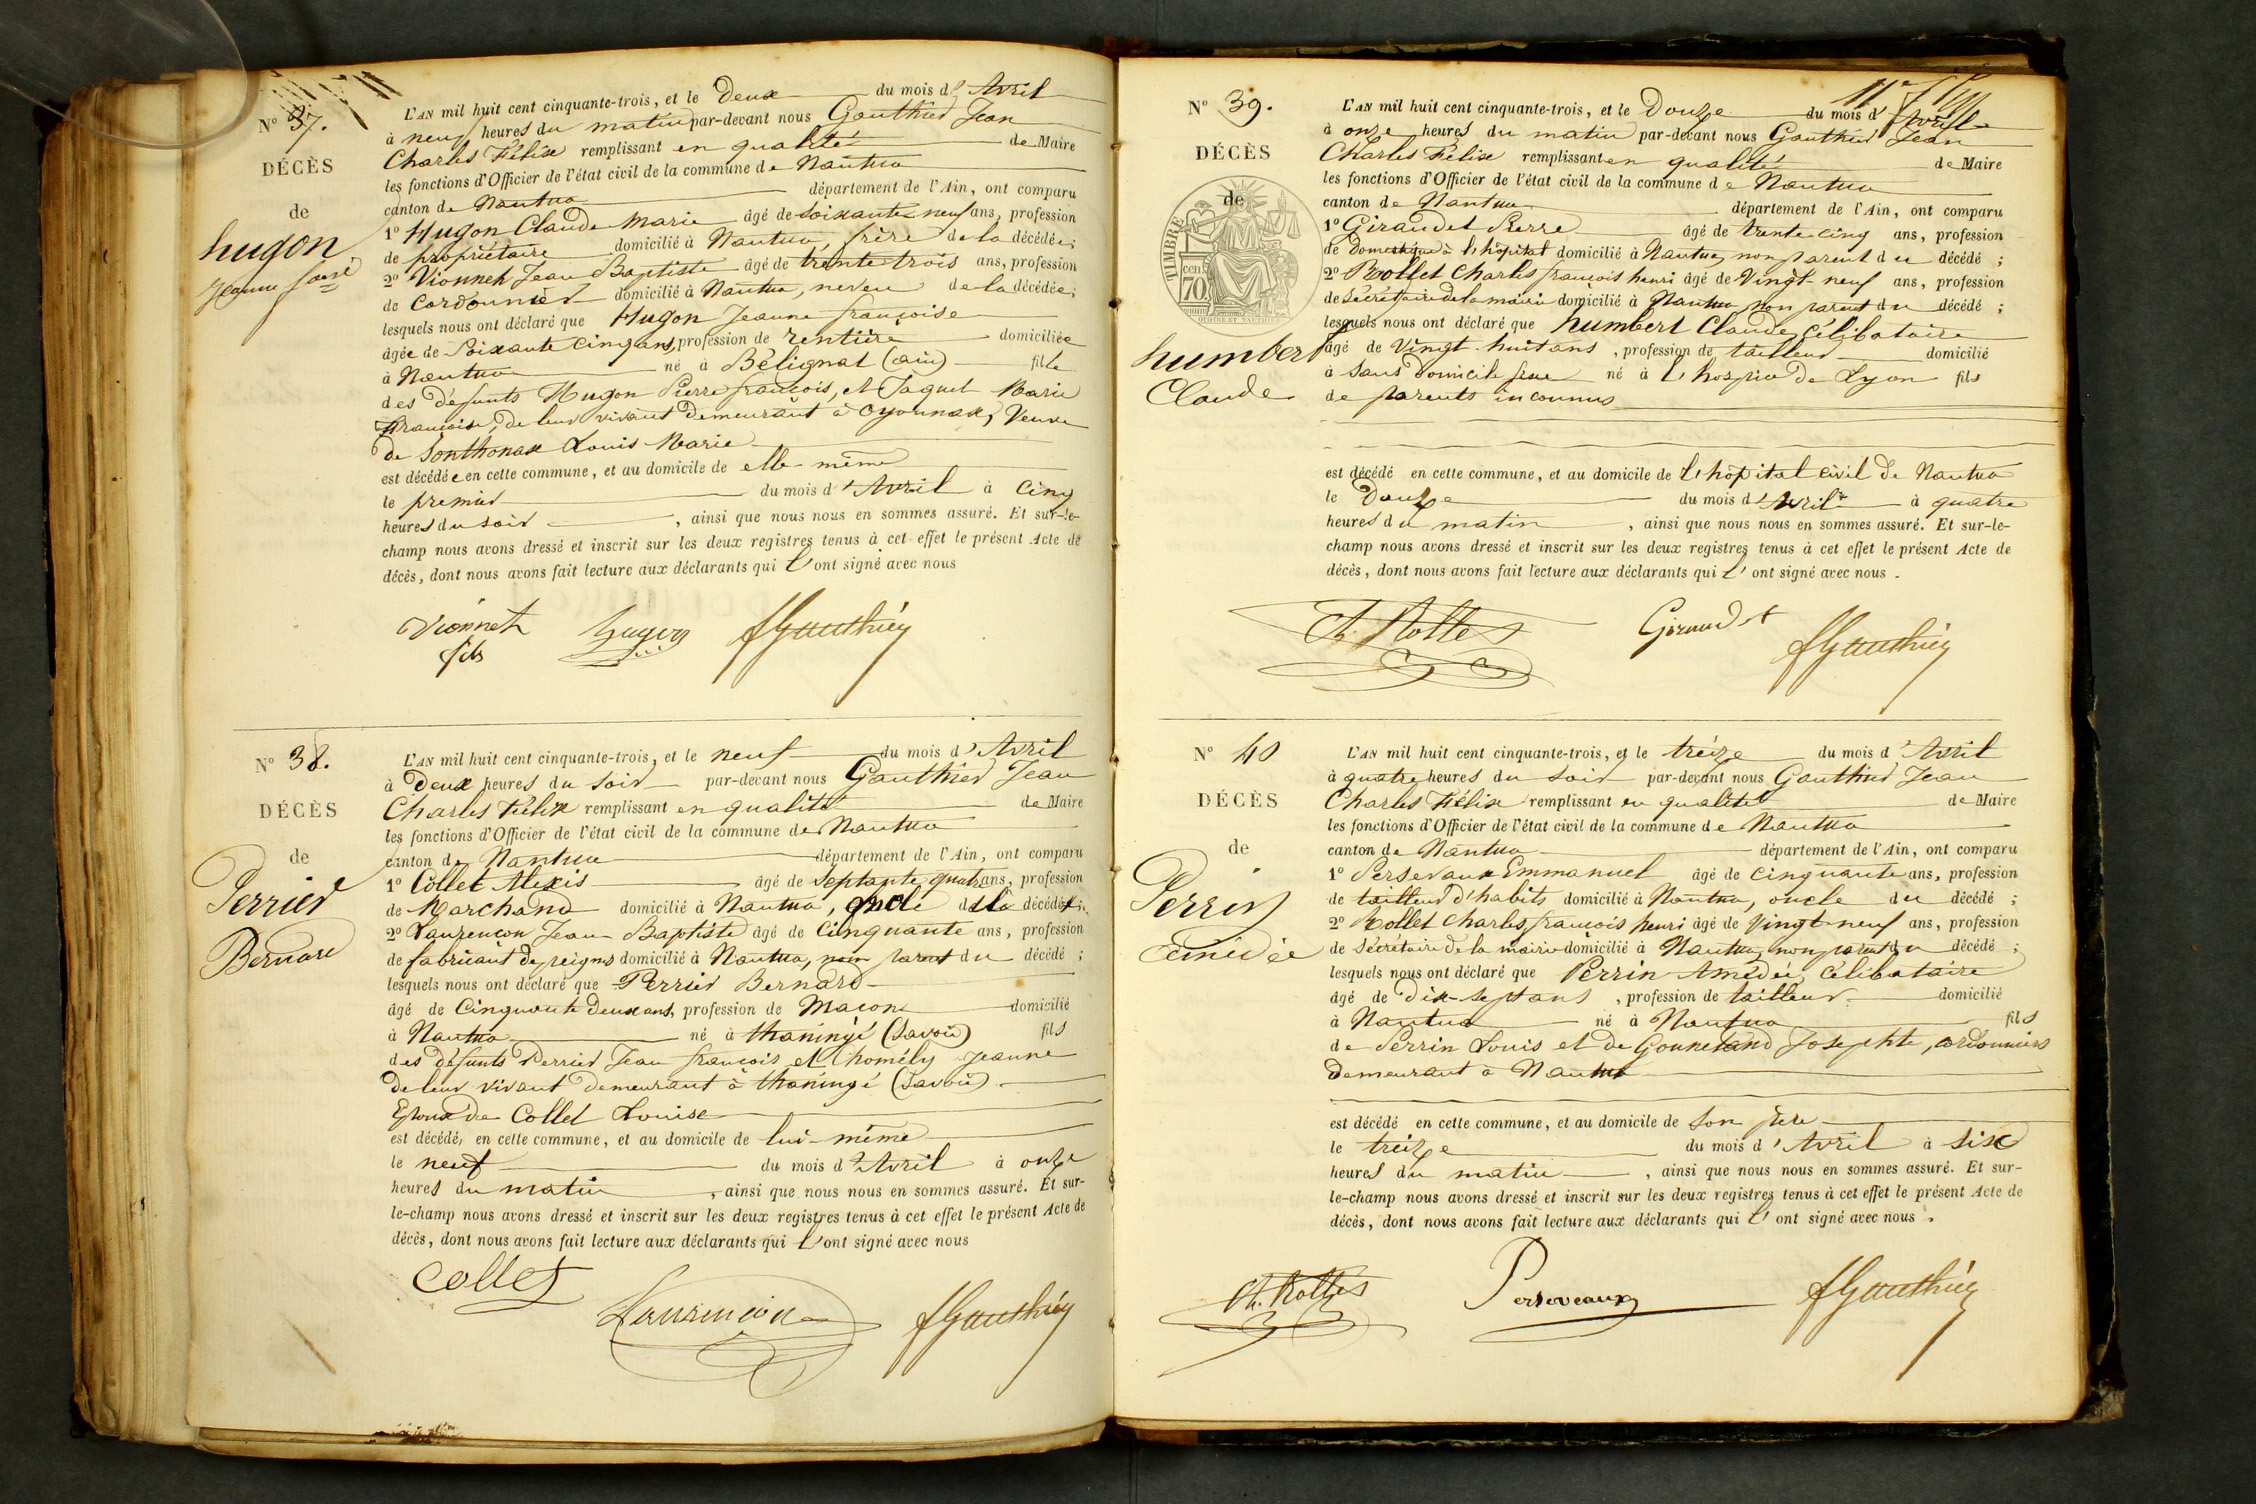 N° 37.
DÉCÈS
de
hugon
Jeanne
L'AN mil huit cent cinquante-trois, et le Deux du mois d' Avril
à neuf heures du matin par-devant nous Gauthier Jean
Charles Félix remplissant en qualité de Maire
les fonctions d'Officier de l'état civil de la commune de Nantua
canton de Nantua département de l'Ain, ont comparu
1° Hugon Claude Marie âgé de Soixante neuf ans, profession
de propriétaire domicilié à Nantua, frère de la décédée;
2° Vionnet Jean Baptiste âgé de trente trois ans, profession
de Cordonnier domicilié à Nantua, neveu de la décédée;
lesquels nous ont déclaré que Hugon Jeanne françoise
âgée de Soixante Cinq ans, profession de rentière domiciliée
à Nantua né à Bélignat (ain) fille
des défunts Hugon Pierre françois, et Jaquet Marie
françoise, de leur vivant demeurant à Oyonnax, Veuve
de Sonthonax Louis Marie
est décédée en cette commune, et au domicile de elle-même
le premier du mois d'Avril à Cinq
heures du soir, ainsi que nous nous en sommes assuré. Et sur-le-
champ nous avons dressé et inscrit sur les deux registres tenus à cet effet le présent Acte de
décès, dont nous avons fait lecture aux déclarants qui l'ont signé avec nous
Vionnet fils hugon fGauthier
N° 38.
DÉCÈS
de
Perrier
Bernard
L'AN mil huit cent cinquante-trois, et le neuf du mois d'Avril
à Deux heures du soir par-devant nous Gauthier Jean
Charles Félix remplissant en qualité de Maire
les fonctions d'Officier de l'état civil de la commune de Nantua
canton de Nantua département de l'Ain, ont comparu
1° Collet Alexis âgé de Septante quatre ans, profession
de Marchand domicilié à Nantua, oncle de la décédé;
2° Lauzencon Jean Baptiste âgé de Cinquante ans, profession
de fabricant de peignes domicilié à Nantua, non parent du décédé;
lesquels nous ont déclaré que Perrier Bernard
âgé de Cinquante Deux ans, profession de Macon domicilié
à Nantua né à thaningé (Savoie) fils
des défunts Perrier Jean françois et thomély Jeanne
de leur vivant demeurant à thaningé (Savoie)
Epoux de Collet Louise
est décédé, en cette commune, et au domicile de lui-même
le neuf du mois d'Avril à onze
heures du matin, ainsi que nous nous en sommes assuré. Et sur-
le-champ nous avons dressé et inscrit sur les deux registres tenus à cet effet le présent Acte de
décès, dont nous avons fait lecture aux déclarants qui l'ont signé avec nous
Collet Lauzencon fGauthier
N° 39.
DÉCÈS
de
TIMBRE
cen 70
humbert
Claude
L'AN mil huit cent cinquante-trois, et le Douze du mois d'Avril
à onze heures du matin par-devant nous Gauthier Jean
Charles Félix remplissant en qualité de Maire
les fonctions d'Officier de l'état civil de la commune de Nantua
canton de Nantua département de l'Ain, ont comparu
1° Giraudet Pierre âgé de trente cinq ans, profession
de Domestique à l'hôpital domicilié à Nantua, non parent du décédé;
2° Rollet Charles françois henri âgé de Vingt-neuf ans, profession
de Sécrétaire de la mairie domicilié à Nantua non parent du décédé;
lesquels nous ont déclaré que humbert Claude Célibataire
âgé de Vingt-huit ans, profession de tailleur domicilié
à sans domicile fixe né à l'hospice de Lyon fils
de parents inconnus
est décédé en cette commune, et au domicile de l'hôpital civil de Nantua
le Douze du mois d'Avril à quatre
heures du matin, ainsi que nous nous en sommes assuré. Et sur-le-
champ nous avons dressé et inscrit sur les deux registres tenus à cet effet le présent Acte de
décès, dont nous avons fait lecture aux déclarants qui l'ont signé avec nous.
Ch. Rollet Giraudet fGauthier
N° 40
DÉCÈS
de
Perrin
Amédée
L'AN mil huit cent cinquante-trois, et le treize du mois d'Avril
à quatre heures du soir par-devant nous Gauthier Jean
Charles Félix remplissant en qualité de Maire
les fonctions d'Officier de l'état civil de la commune de Nantua
canton de Nantua département de l'Ain, ont comparu
1° Persevaux Emmanuel âgé de Cinquante ans, profession
de tailleur d'habits domicilié à Nantua, oncle du décédé;
2° Rollet Charles françois henri âgé de Vingt-neuf ans, profession
de Sécrétaire de la mairie domicilié à Nantua, non parent du décédé;
lesquels nous ont déclaré que Perrin Amédée Célibataire
âgé de Dix-Sept ans, profession de tailleur domicilié
à Nantua né à Nantua fils
de Perrin Louis et de Josephte, cordonniers
demeurant à Nantua
est décédé en cette commune, et au domicile de son père
le treize du mois d'Avril à six
heures du matin, ainsi que nous nous en sommes assuré. Et sur-
le-champ nous avons dressé et inscrit sur les deux registres tenus à cet effet le présent Acte de
décès, dont nous avons fait lecture aux déclarants qui l'ont signé avec nous.
Ch. Rollet Perseveaux fGauthier